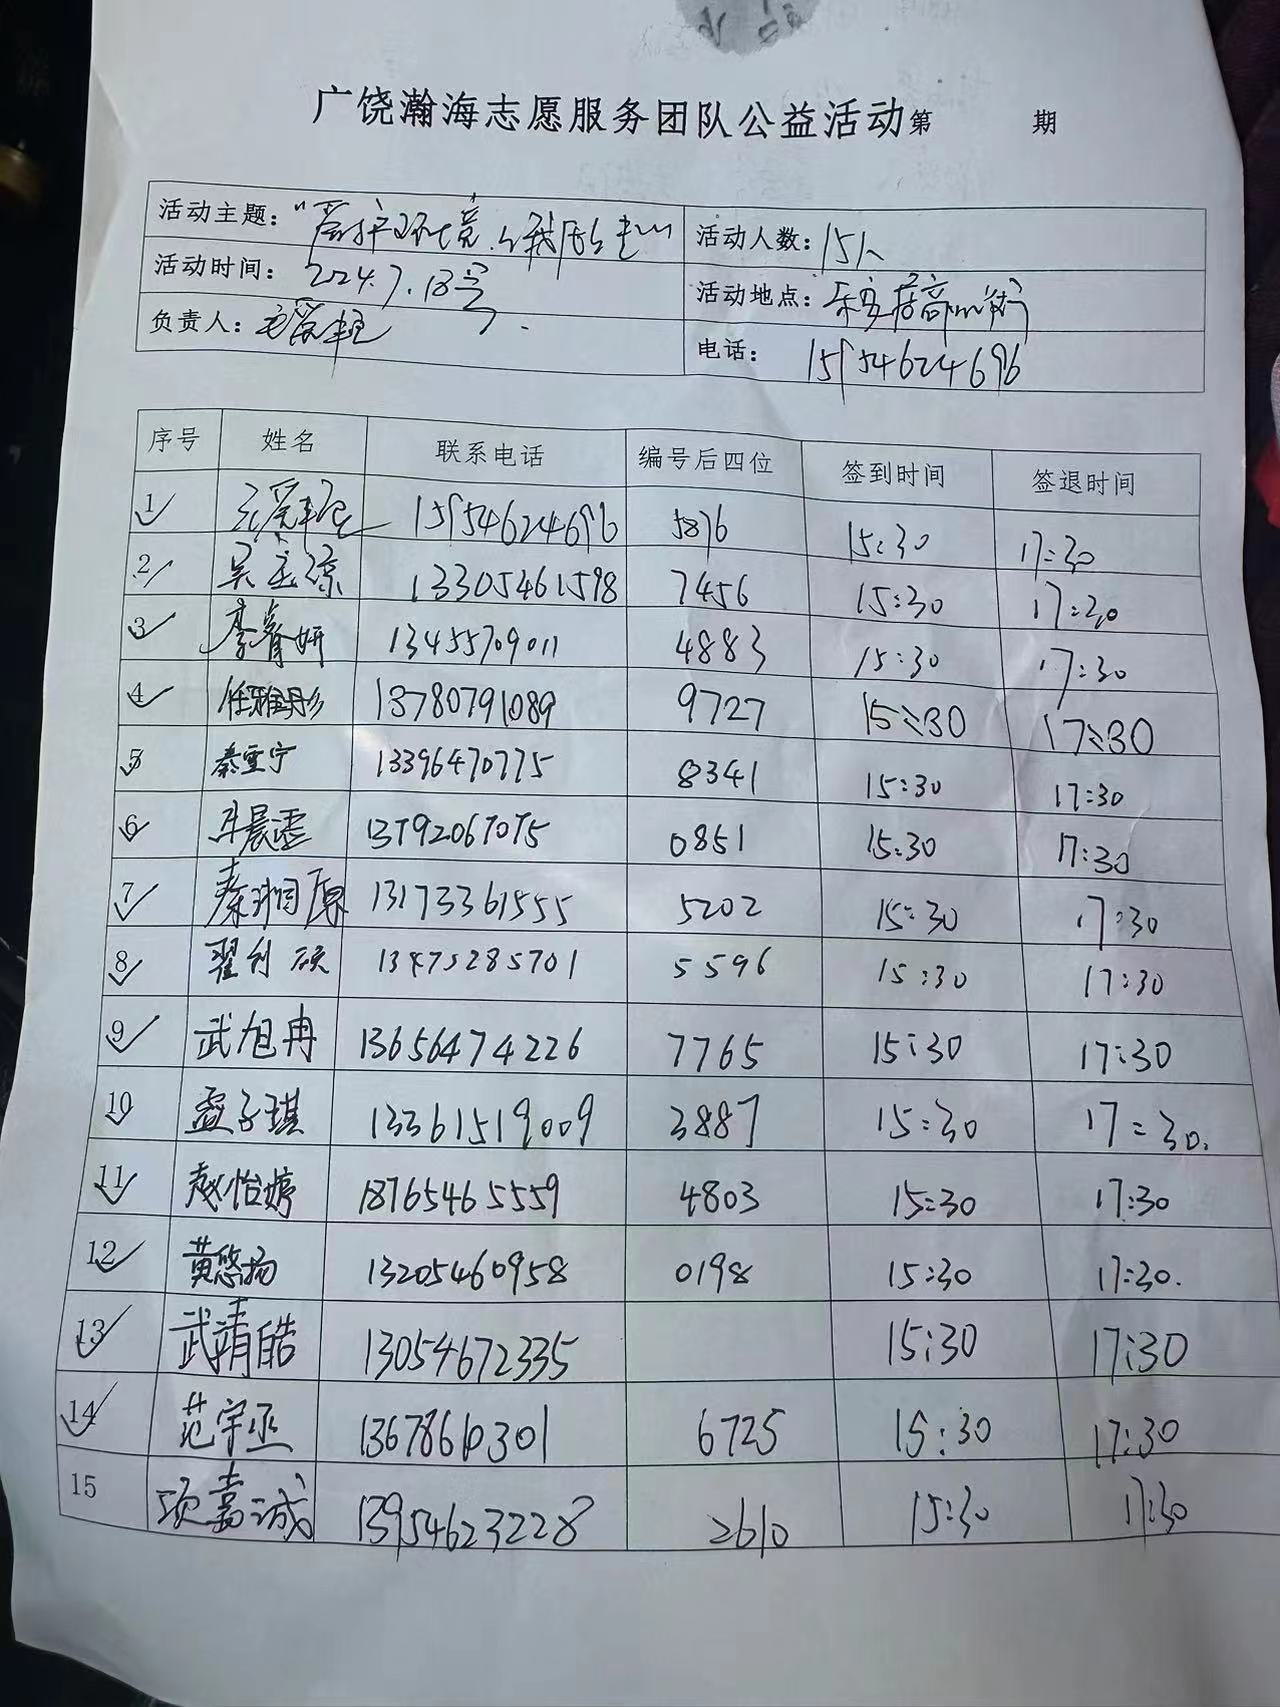 广饶瀚海志愿服务团队公益活动第 期
活动主题：“爱护环境 活动人数：15人
活动时间：2024.7.18号 活动地点：乐安
负责人： 电话：15954624696
序号 姓名 联系电话 编号后四位 签到时间 签退时间
1 15954624696 5876 15:30 17:30
2 吴 13305461598 7456 15:30 17:30
3 李睿妍 13455709011 4883 15:30 17:30
4 任雅彤 13780791089 9727 15:30 17:30
5 秦雪宁 13396470775 8341 15:30 17:30
6 晨 13792067075 0851 15:30 17:30
7 秦润原 13173361555 5202 15:30 17:30
8 翟利硕 13475285701 5596 15:30 17:30
9 武旭冉 13656474226 7765 15:30 17:30
10 孟子琪 13361519009 3887 15:30 17:30.
11 赵怡婷 18765465559 4803 15:30 17:30
12 黄悠扬 13205460958 0198 15:30 17:30.
13 武靖皓 13054672335 15:30 17:30
14 范宇丞 13678660301 6725 15:30 17:30
15 项嘉诚 13954623228 2610 15:30 17:30